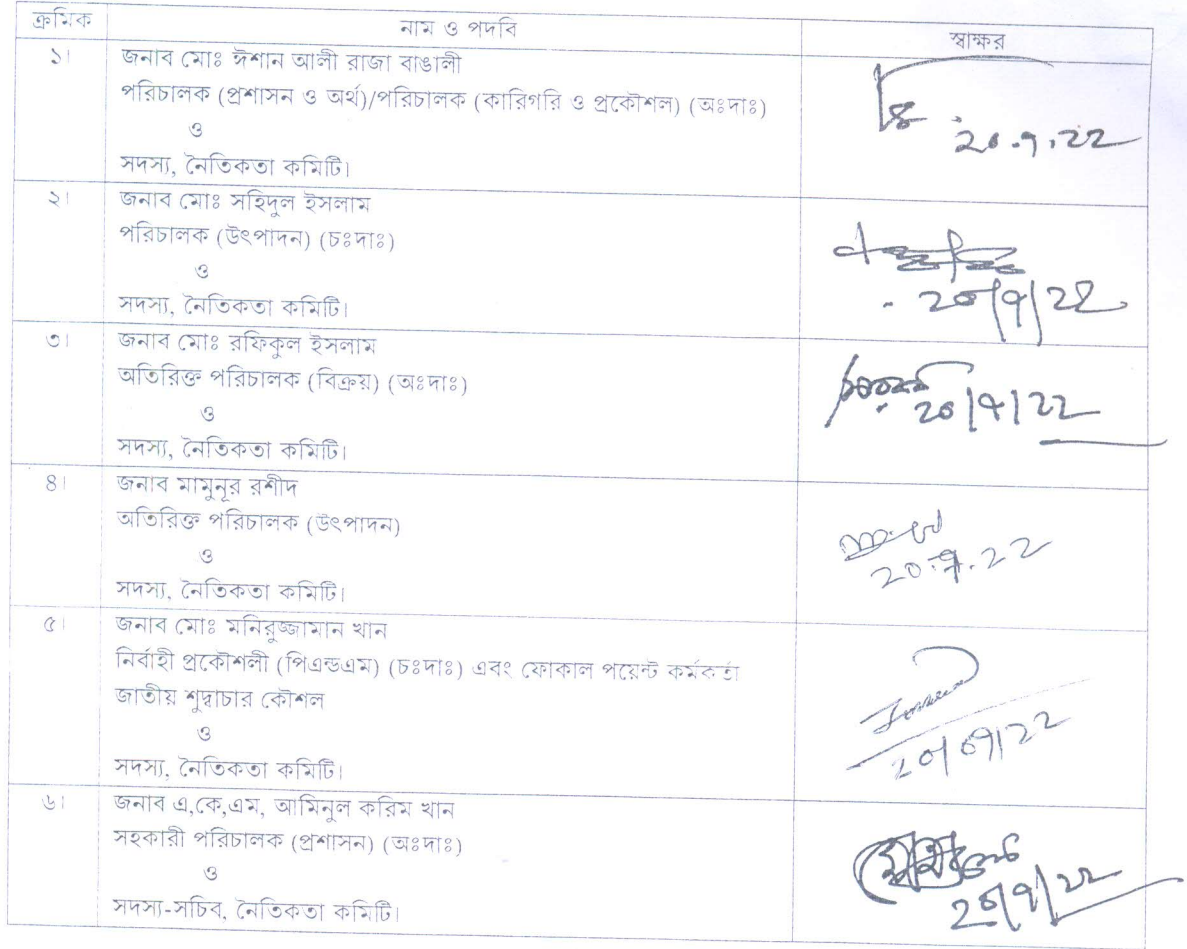 ক্রমিক নাম ও পদবি স্বাক্ষর
১। জনাব মোঃ ঈশান আলী রাজা বাঙালী
পরিচালক (প্রশাসন ও অর্থ)/পরিচালক (কারিগরি ও প্রকৌশল) (অঃদাঃ)
ও
সদস্য, নৈতিকতা কমিটি।
20.9.22
২। জনাব মোঃ সহিদুল ইসলাম
পরিচালক (উৎপাদন) (চঃদাঃ)
ও
সদস্য, নৈতিকতা কমিটি।
20/9/22
৩। জনাব মোঃ রফিকুল ইসলাম
অতিরিক্ত পরিচালক (বিক্রয়) (অঃদাঃ)
ও
সদস্য, নৈতিকতা কমিটি।
20/9/22
৪। জনাব মামুনূর রশীদ
অতিরিক্ত পরিচালক (উৎপাদন)
ও
সদস্য, নৈতিকতা কমিটি।
20.9.22
৫। জনাব মোঃ মনিরুজ্জামান খান
নির্বাহী প্রকৌশলী (পিএন্ডএম) (চঃদাঃ) এবং ফোকাল পয়েন্ট কর্মকর্তা
জাতীয় শুদ্বাচার কৌশল
ও
সদস্য, নৈতিকতা কমিটি।
20/09/22
৬। জনাব এ,কে,এম, আমিনুল করিম খান
সহকারী পরিচালক (প্রশাসন) (অঃদাঃ)
ও
সদস্য-সচিব, নৈতিকতা কমিটি।
20/9/22